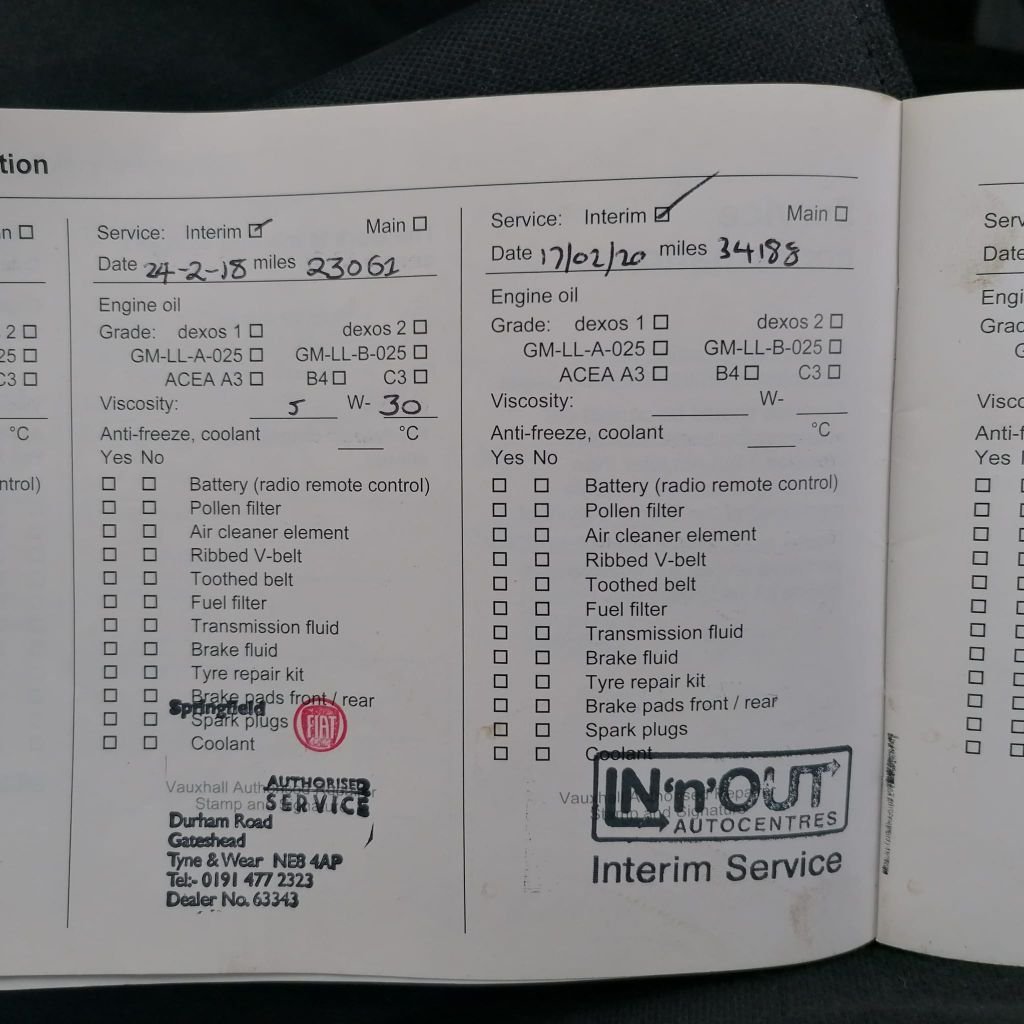 tion
n
2
25
C3
°C
ntrol)
Service: Interim Main
Date 24-2-18 miles 23061
Engine oil
Grade: dexos 1 dexos 2
GM-LL-A-025 GM-LL-B-025
ACEA A3 B4 C3
Viscosity: 5 W- 30
Anti-freeze, coolant °C
Yes No
Battery (radio remote control)
Pollen filter
Air cleaner element
Ribbed V-belt
Toothed belt
Fuel filter
Transmission fluid
Brake fluid
Tyre repair kit
Brake pads front / rear
Springfield
FIAT
Spark plugs
Coolant
Vauxhall
AUTHORISED
Stamp
SERVICE
Durham Road
Gateshead
Tyne & Wear NE8 4AP
Tel:- 0191 477 2323
Dealer No. 63343
Service: Interim Main
Date 17/02/20 miles 34188
Engine oil
Grade: dexos 1 dexos 2
GM-LL-A-025 GM-LL-B-025
ACEA A3 B4 C3
Viscosity: W-
Anti-freeze, coolant °C
Yes No
Battery (radio remote control)
Pollen filter
Air cleaner element
Ribbed V-belt
Toothed belt
Fuel filter
Transmission fluid
Brake fluid
Tyre repair kit
Brake pads front / rear
Spark plugs
Coolant
IN'n'OUT
AUTOCENTRES
Interim Service
Serv
Date
Engi
Grad
G
Visco
Anti-f
Yes